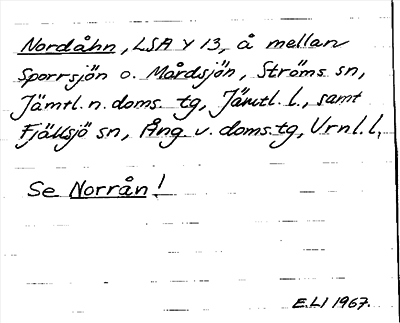 Nordåhn, LSA Y 13, å mellan
Sporrsjön o. Mårdsjön, Ströms sn,
Jämtl. n. doms. tg, Jämtl. l., samt
Fjällsjö sn, Ång. v. doms. tg, Vrnl. l,
Se Norrån!
E.LI 1967.